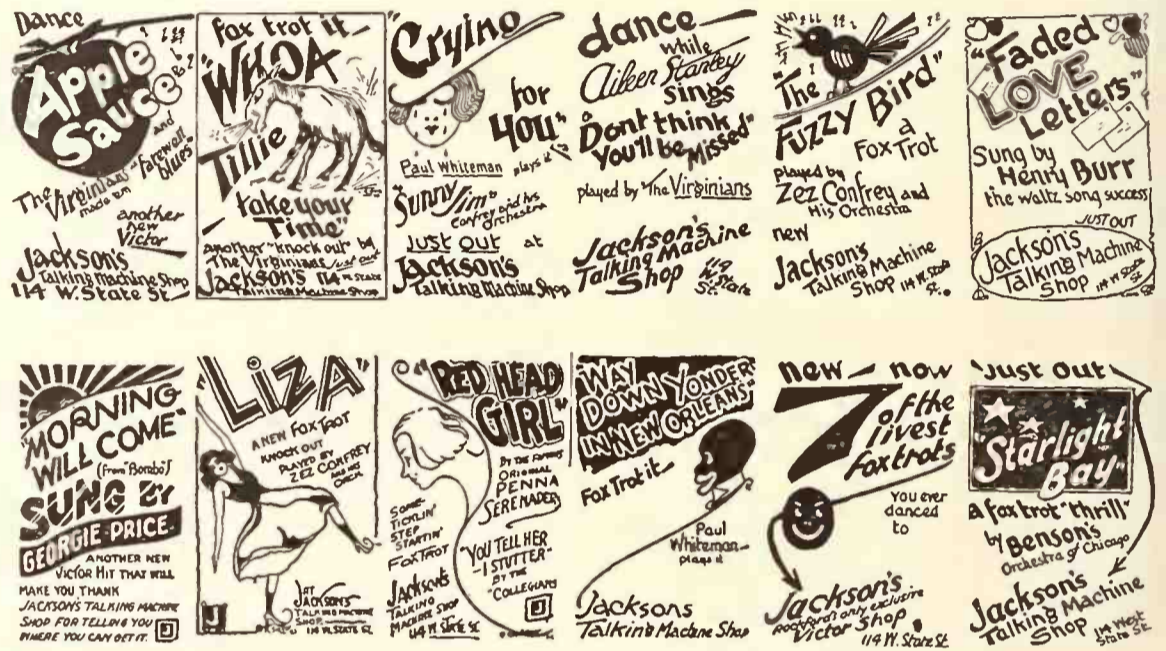 Dance
"Apple
Sauce"
and
"Farewell
blues"
The Virginians
made 'em
another
new
Victor
Jackson's
Talking Machine Shop
114 W. State St
fox trot it
"WHOA
Tillie
take your
Time"
another "knock out" by
The Virginians Just out
Jackson's 114 W. STATE
Talking Machine Shop
"Crying
for
YOU"
Paul Whiteman plays it
"Sunny
Jim"
Confrey and his
Orchestra
Just out at
Jackson's
Talking Machine Shop
dance
while
Aileen Stanley
sings
"Dont think
You'll be Missed"
played by The Virginians
Jackson's
Talking Machine
Shop 114
W. State
St.
"The
Fuzzy Bird"
a
Fox Trot
played by
Zez Confrey and
His Orchestra
new
Jackson's
Talking Machine
Shop 114 W. State
St.
"Faded
LOVE
Letters"
Sung by
Henry Burr
the waltz song success
JUST OUT
Jackson's
Talking Machine
Shop 114 W. State
St
"MORNING
WILL COME"
(from "Bombo")
SUNG BY
GEORGIE-PRICE-
ANOTHER NEW
VICTOR HIT THAT WILL
MAKE YOU THANK
JACKSON'S TALKING MACHINE
SHOP FOR TELLING YOU
WHERE YOU CAN GET IT. J
"LIZA"
A NEW FOX TROT
KNOCK OUT
PLAYED BY
ZEZ CONFREY
AND HIS
ORCH.
J
AT
JACKSON'S
TALKING MACHINE
SHOP
114 W. STATE ST.
"RED HEAD
GIRL"
BY THE FAMOUS
ORIGINAL
PENNA
SERENADERS
SOME
TICKLIN'
STEP
STARTIN'
FOXTROT
"YOU TELL HER
-I STUTTER"
BY THE
"COLLEGIANS
Jackson's
TALKING
MACHINE SHOP
114 W. STATE ST.
J
"WAY
DOWN YONDER
IN NEW ORLEANS"
Fox Trot it
Paul
Whiteman
plays it
Jacksons
Talking Machine Shop
new - now
7 of the
livest
foxtrots
You ever
danced
to
Jackson's
Rockford's only exclusive
Victor Shop
114 W. State St
"Just Out
"Starlight
Bay"
a fox trot "thrill"
by Benson's
Orchestra of Chicago
Jackson's
Talking Machine
Shop 114 West
State St.